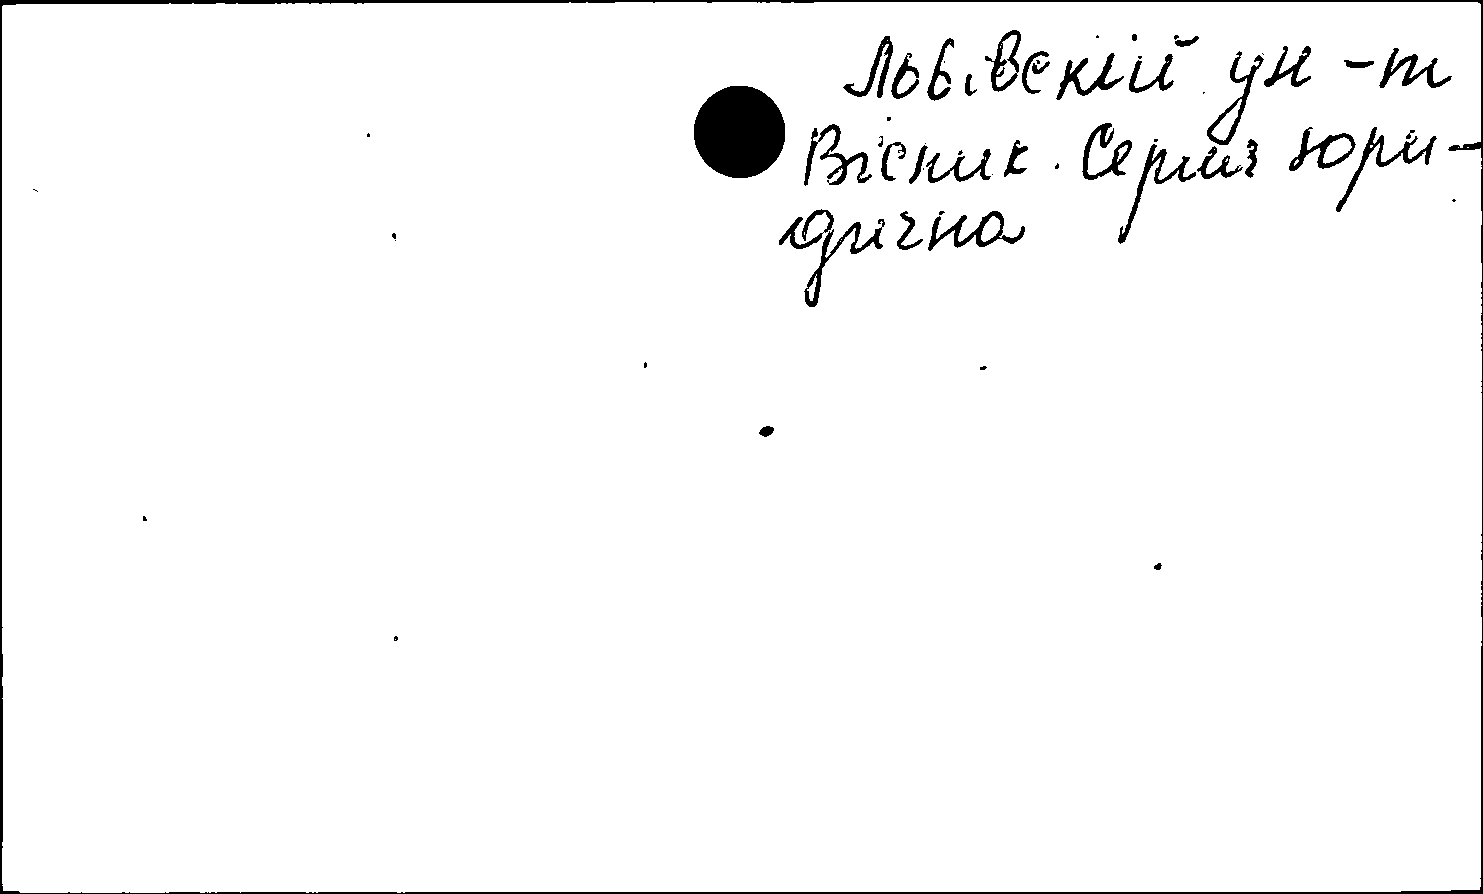 Львівскій ун-т
Вісник. Серия юри-
дична